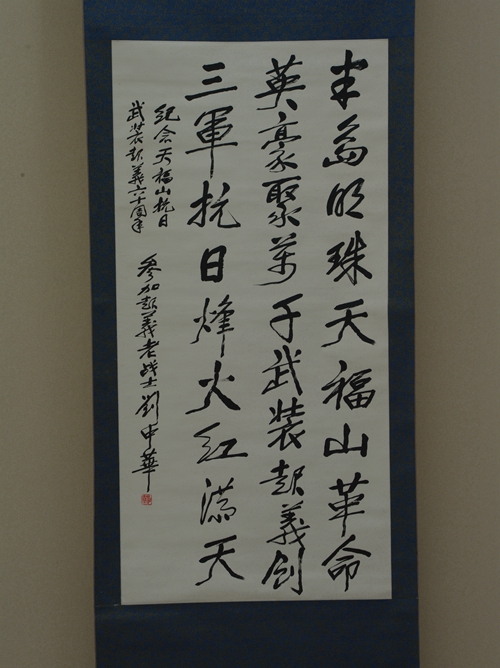 半岛明珠天福山革命
英豪聚万千武装起義創
三軍抗日烽火红满天
纪念天福山抗日
武装起義六十周年
参加起義老战士劉中華